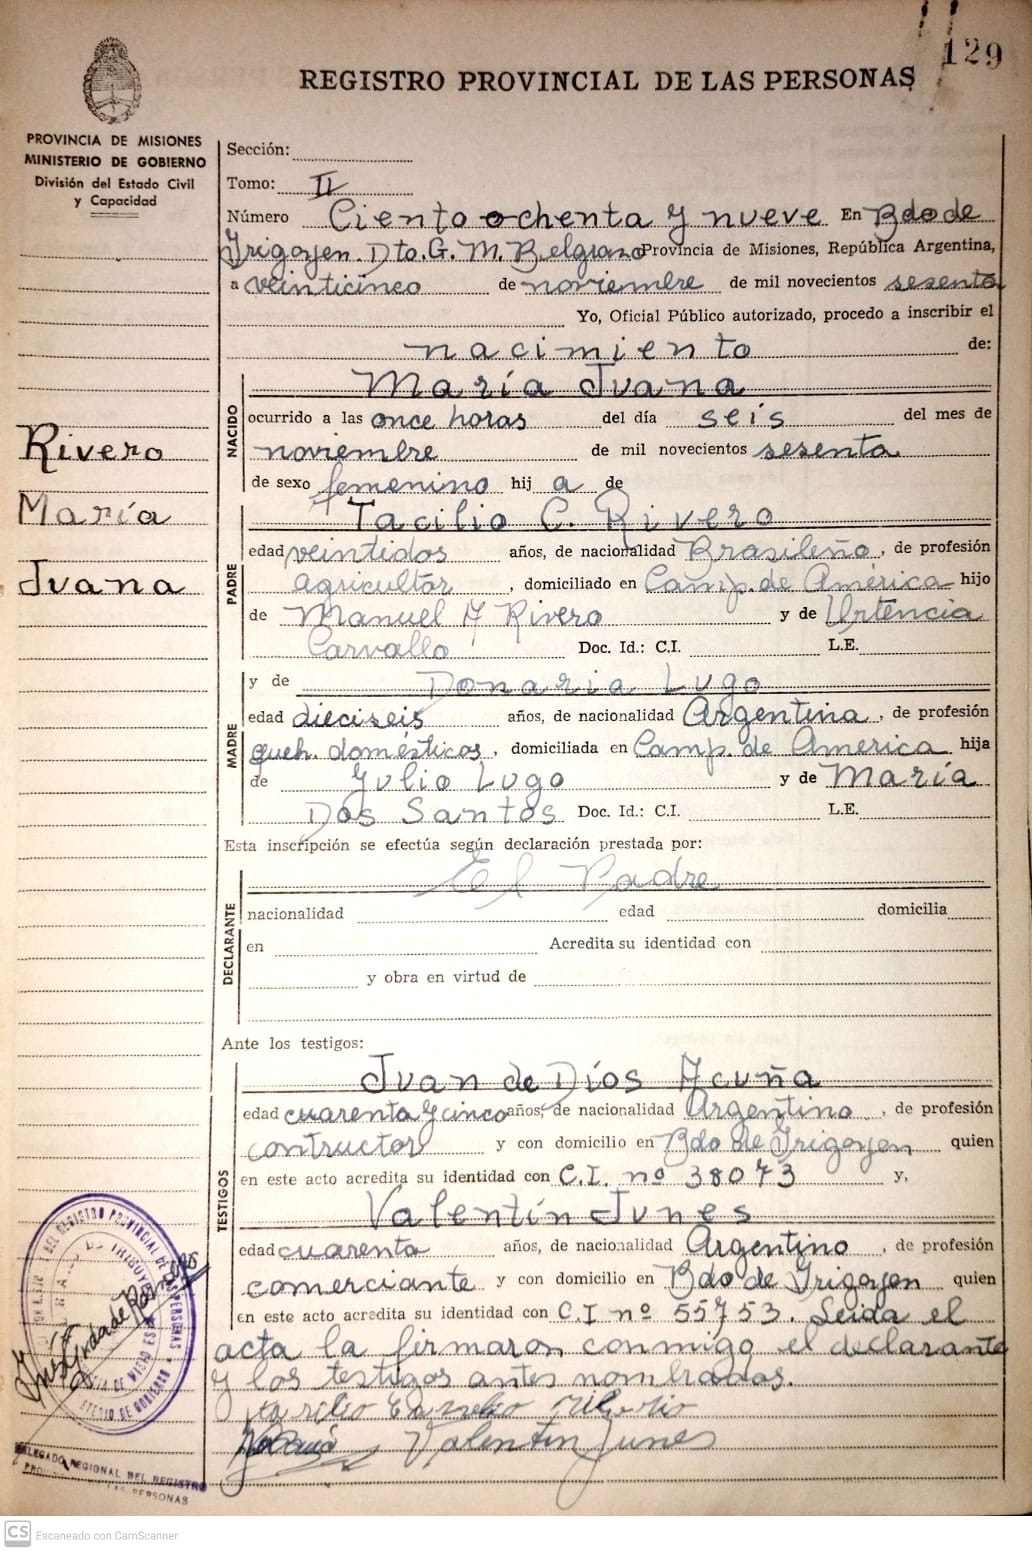 129
REGISTRO PROVINCIAL DE LAS PERSONAS
PROVINCIA DE MISIONES
MINISTERIO DE GOBIERNO
División del Estado Civil
y Capacidad
Rivero
María
Juana
Sección:
Tomo: II
Número Ciento ochenta y nueve En Bdo de
Irigoyen Dto. G. M. Belgrano Provincia de Misiones, República Argentina,
a veinticinco de noviembre de mil novecientos sesenta
Yo, Oficial Público autorizado, procedo a inscribir el
nacimiento de:
NACIDO
María Juana
ocurrido a las once horas del día seis del mes de
noviembre de mil novecientos sesenta
de sexo femenino hij a de
PADRE
Tacilio C. Rivero
edad veintidos años, de nacionalidad Brasileño, de profesión
agricultor, domiciliado en Camp. de América hijo
de Manuel A Rivero y de Urtencia
Carvallo Doc. Id.: C.I. L.E.
MADRE
y de Donaria Lugo
edad dieciseis años, de nacionalidad Argentina, de profesión
queh. domésticos, domiciliada en Camp. de America hija
de Julio Lugo y de María
Dos Santos Doc. Id.: C.I. L.E.
Esta inscripción se efectúa según declaración prestada por:
DECLARANTE
El Padre
nacionalidad edad domicilia
en Acredita su identidad con
y obra en virtud de
Ante los testigos:
TESTIGOS
Juan de Díos Acuña
edad cuarenta y cinco años, de nacionalidad Argentino, de profesión
contructor y con domicilio en Bdo de Irigoyen quien
en este acto acredita su identidad con C.I. nº 38073 y,
Valentín Junes
edad cuarenta años, de nacionalidad Argentino, de profesión
comerciante y con domicilio en Bdo de Irigoyen quien
en este acto acredita su identidad con C I nº 55753. Leida el
acta la firmaron conmigo el declarante
y los testigos antes nombrados.
Valentin Junes
DEL REGISTRO PROVINCIAL DE LAS PERSONAS
DELEGADO REGIONAL DEL REGISTRO
LAS PERSONAS
CS Escaneado con CamScanner